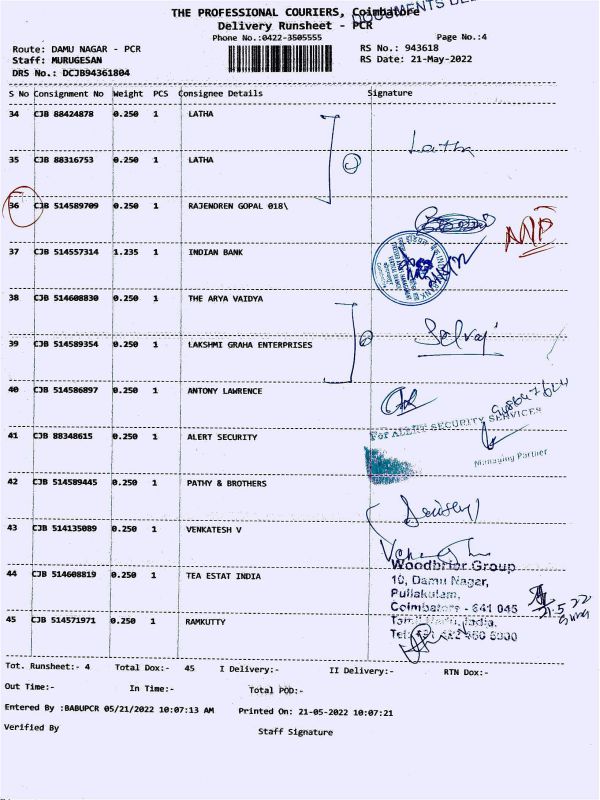 THE PROFESSIONAL COURIERS, Coimbatore
Delivery Runsheet - PCR
Phone No.:0422-3505555
Page No.:4
Route: DAMU NAGAR - PCR
RS No.: 943618
Staff: MURUGESAN
RS Date: 21-May-2022
DRS No.: DCJB94361804
S No Consignment No Weight PCS Consignee Details Signature
34 CJB 88424878 0.250 1 LATHA
Latha
35 CJB 88316753 0.250 1 LATHA
36 CJB 514589709 0.250 1 RAJENDREN GOPAL 018\
37 CJB 514557314 1.235 1 INDIAN BANK
38 CJB 514608830 0.250 1 THE ARYA VAIDYA
Selvaj
39 CJB 514589354 0.250 1 LAKSHMI GRAHA ENTERPRISES
40 CJB 514586897 0.250 1 ANTONY LAWRENCE
For ALERT SECURITY SERVICES
41 CJB 88348615 0.250 1 ALERT SECURITY
Managing Partner
42 CJB 514589445 0.250 1 PATHY & BROTHERS
43 CJB 514135089 0.250 1 VENKATESH V
Woodbriar Group
44 CJB 514608819 0.250 1 TEA ESTAT INDIA
10, Damu Nagar,
Puliakulam,
Coimbatore - 641 045
21.5.22
45 CJB 514571971 0.250 1 RAMKUTTY
Tamil Nadu, India.
Tot. Runsheet:- 4 Total Dox:- 45 I Delivery:- II Delivery:- RTN Dox:-
Out Time:- In Time:- Total POD:-
Entered By :BABUPCR 05/21/2022 10:07:13 AM Printed On: 21-05-2022 10:07:21
Verified By Staff Signature